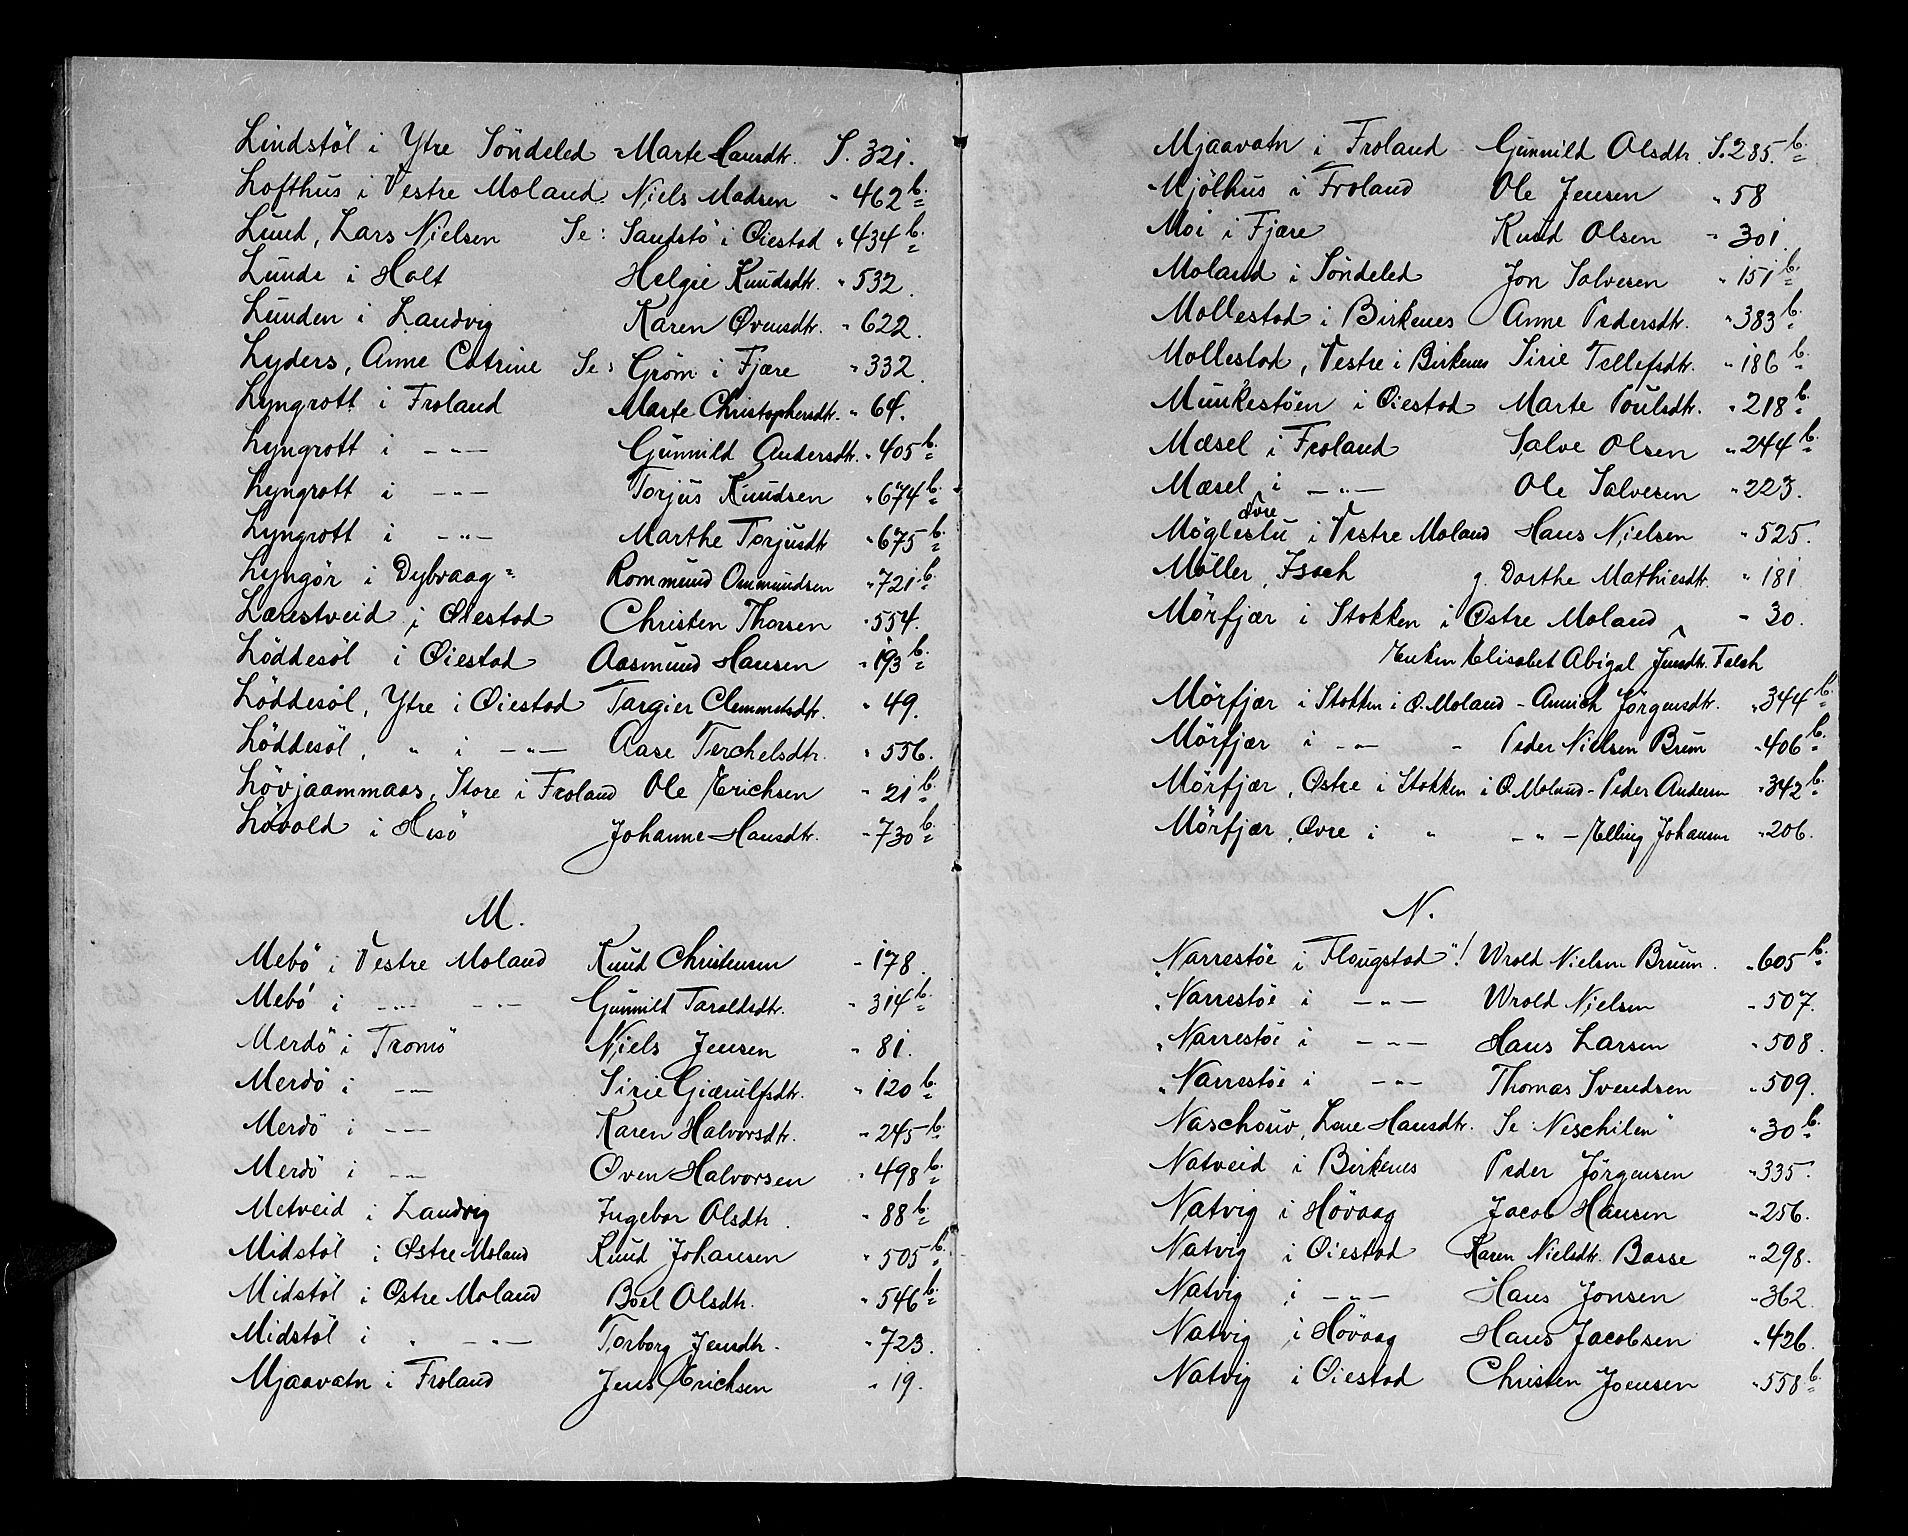 Lindstöl i Ytre Söndeled - Marte Hansdtr. S. 321.
Lofthus i Vestre Moland Niels Madsen " 462 b.
Lund, Lars Nielsen Se: Sandstö i Øiestad " 434 b.
Lunde i Holt Helgie Knudsdtr. " 532.
Lunden i Landvig Karen Øvensdtr. " 622.
Lyders, Anne Catrine Se: Gröm i Fjære " 332.
Lyngrott i Froland Marte Christophersdtr. " 64.
Lyngrott i —"— Gunnild Andersdtr. " 405 b.
Lyngrott i —"— Torjus Knudsen " 674 b.
Lyngrott i —"— Marthe Torjusdtr " 675 b.
Lyngör i Dybvaag Rommund Ommundsen " 721 b.
Lærestveid i Øiestad Christen Thorsen " 554.
Löddesöl i Øiestad Aasmund Hansen " 193 b.
Löddesöl, Ytre i Øiestad Targier Clemmetsdtr. " 49.
Löddesöl, " i —"— Aase Terchelsdtr. " 556.
Lövjaammaas, Store i Froland Ole Erichsen " 21 b.
Lövold i Hisö Johanne Hansdtr. " 730 b.
M.
Mebö i Vestre Moland Knud Christensen " 178.
Mebö i —"— —"— Gunnild Taraldsdtr. " 314 b.
Merdö i Tromö Niels Jensen " 81.
Merdö i —"— Sirie Giærulfsdtr. " 120 b.
Merdö i —"— Karen Halvorsdtr. " 245 b.
Merdö i —"— Oven Halvorsen " 498 b.
Metveid i Landvig Ingebor Olsdtr. " 88 b.
Midstöl i Østre Moland Knud Johansen " 505 b.
Midstöl i Østre Moland Boel Olsdtr. " 546 b.
Midstöl i " —"— Torborg Jensdtr. " 723.
Mjaavatn i Froland Jens Erichsen " 19.
Mjaavatn i Froland Gunnild Olsdtr. S. 285 b.
Mjölhus i Froland Ole Jensen " 58
Moi i Fjære Knud Olsen " 301.
Moland i Söndeled Jon Salvesen " 151 b.
Mollestad i Birkenes Anne Pedersdtr. " 383 b.
Mollestad, Vestre i Birkenes Sirie Tellefsdtr. " 186 b.
Munkestöen i Øiestad Marte Poulsdtr. " 218 b.
Mæsel i Froland Salve Olsen " 244 b.
Mæsel i —"— Ole Salvesen " 223.
Möglestu Øvre i Vestre Moland Hans Nielsen " 525.
Möller, Isach g. Dorthe Mathiesdtr. " 181
Mörfjær i Stokken i Østre Moland " 30.
Enken Elisabet Abigal Jensdtr. Falch
Mörfjær i Stokken i Ø. Moland - Annich Jörgensdtr. " 344 b.
Mörfjær i —"— - Peder Nielsen Brun " 406 b.
Mörfjær, Østre i Stokken i Ø. Moland - Peder Andersen " 342 b.
Mörfjær, Øvre i " —"— Elling Johansen " 206.
N.
"Narrestöe i Flougstad"! Wrold Nielsen Bruun. " 605 b.
"Narrestöe i —"— Wrold Nielsen " 507.
"Narrestöe i —"— Hans Larsen " 508.
"Narrestöe i —"— Thomas Svendsen " 509.
Naschouv, Lene Hansdtr. Se: Neschilen " 30 b.
Natveid i Birkenes Peder Jörgensen " 335.
Natvig i Hövaag Jacob Hansen " 256.
Natvig i Øiestad Karen Nielsdtr. Basse " 298.
Natvig i —"— Hans Jonsen " 362.
Natvig i Hövaag Hans Jacobsen " 426.
Natvig i Oiestad Christen Joensen " 558 b.